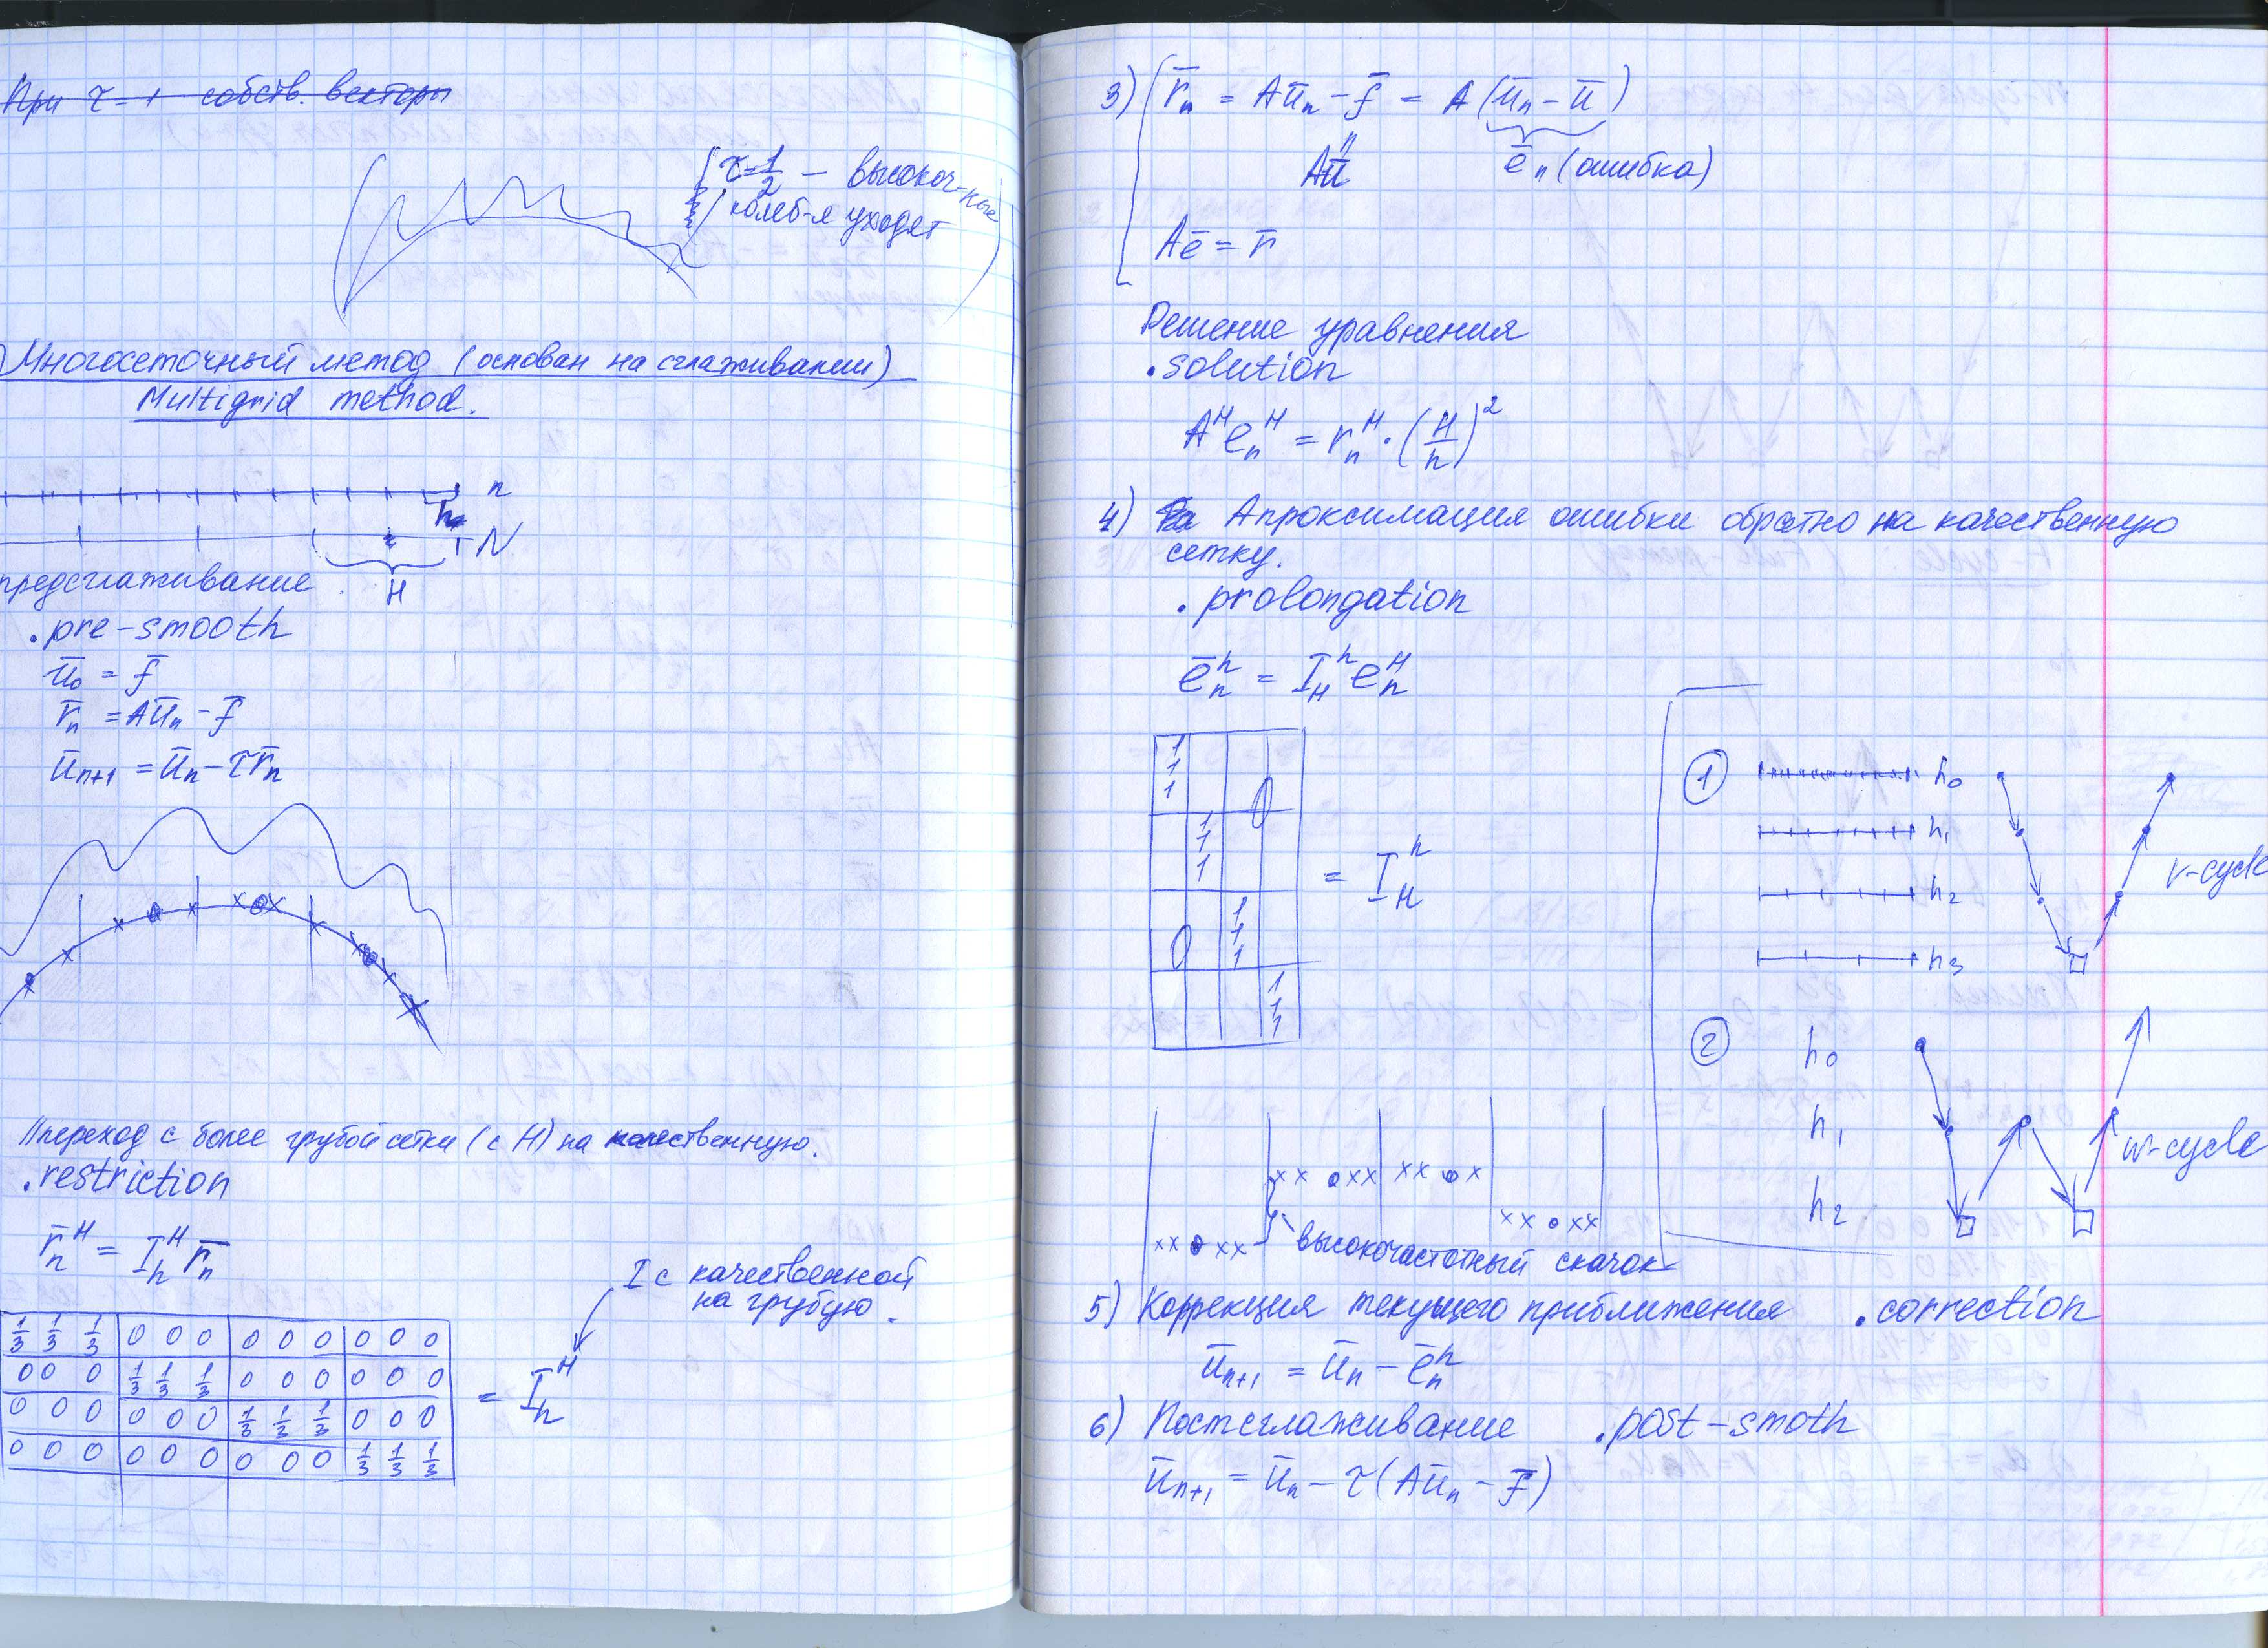 При τ = 1 собств. векторы
τ = 1/2 — высокоч-ные
колеб-я уходят
Многосеточный метод (основан на сглаживании)
Multigrid method.
n
h
N
H
предсглаживание
.pre-smooth
ū₀ = f̄
r̄ₙ = Aūₙ - f̄
ūₙ₊₁ = ūₙ - τr̄ₙ
переход с более грубой сетки (с H) на качественную.
.restriction
r̄ₙᴴ = Iₕᴴ r̄ₙ
I с качественной
на грубую.
1/3 1/3 1/3 0 0 0 0 0 0 0 0 0
0 0 0 1/3 1/3 1/3 0 0 0 0 0 0
0 0 0 0 0 0 1/3 1/3 1/3 0 0 0
0 0 0 0 0 0 0 0 0 1/3 1/3 1/3
= Iₕᴴ
3) r̄ₙ = Aūₙ - f̄ = A(ūₙ - ū)
Aū
ēₙ (ошибка)
Aē = r̄
Решение уравнения
.solution
Aᴴeₙᴴ = rₙᴴ · (H/h)²
4) Апроксимация ошибки обратно на качественную
сетку.
.prolongation
ēₙʰ = I_Hʰ eₙᴴ
1
1
1
0
1
1
1
0
1
1
1
1
1
1
= I_Hʰ
1 h₀
h₁
h₂
h₃
V-cycle
2 h₀
h₁
h₂
W-cycle
высокочастотный скачок
5) Коррекция текущего приближения .correction
ūₙ₊₁ = ūₙ - ēₙʰ
6) Постсглаживание .post-smoth
ūₙ₊₁ = ūₙ - τ(Aūₙ - f̄)